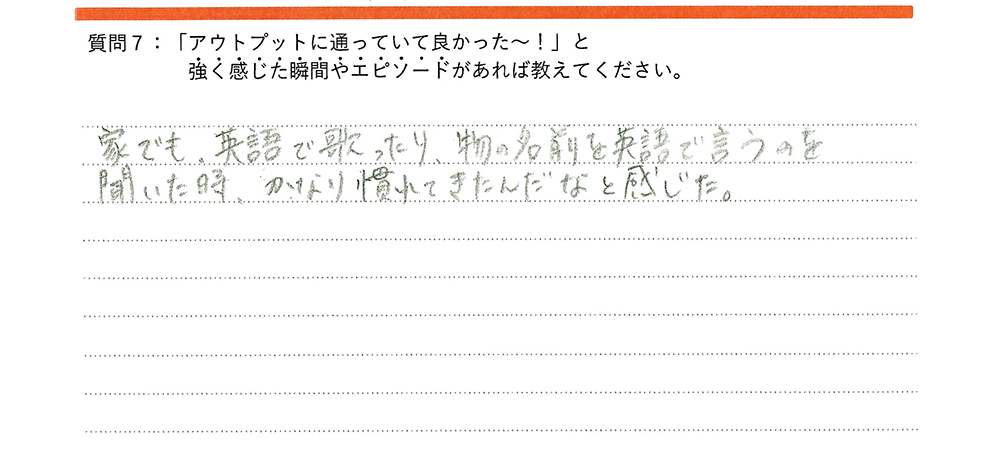 質問7：「アウトプットに通っていて良かった〜！」と
強く感じた瞬間やエピソードがあれば教えてください。
家でも、英語で歌ったり、物の名前を英語で言うのを
聞いた時、かなり慣れてきたんだなと感じた。